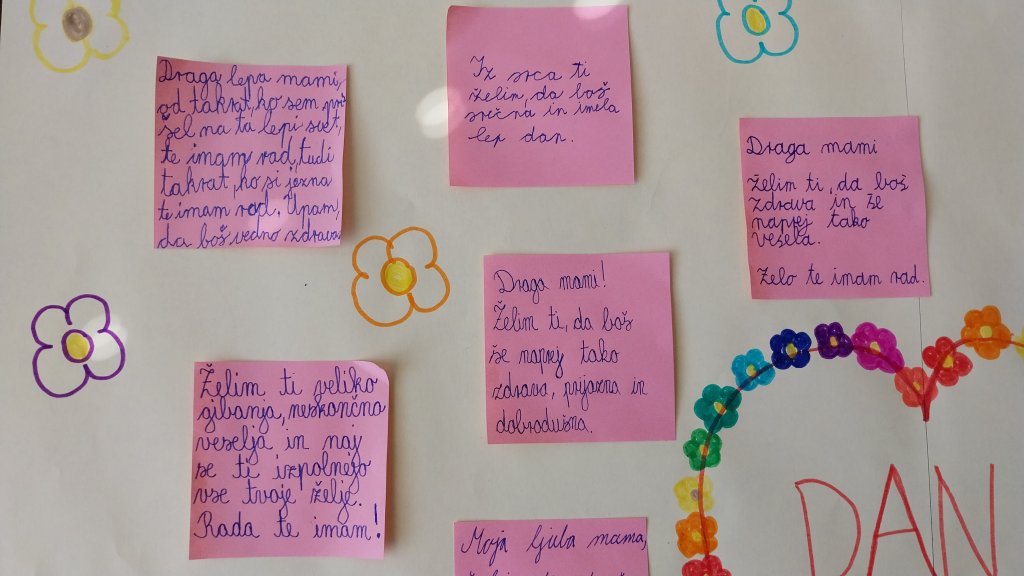 Draga lepa mami,
od takrat, ko sem pri
šel na ta lepi svet,
te imam rad, tudi
takrat, ko si jezna
te imam rad. Upam,
da boš vedno zdrava.
Iz srca ti
želim, da boš
srečna in imela
lep dan.
Draga mami
želim ti, da boš
zdrava in še
naprej tako
vesela.
Zelo te imam rad.
Draga mami!
Želim ti, da boš
še naprej tako
zdrava, prijazna in
dobrodušna.
Želim ti veliko
gibanja, neskončna
veselja in naj
se ti izpolnejo
vse tvoje želje.
Rada te imam!
Moja ljuba mama,
DAN